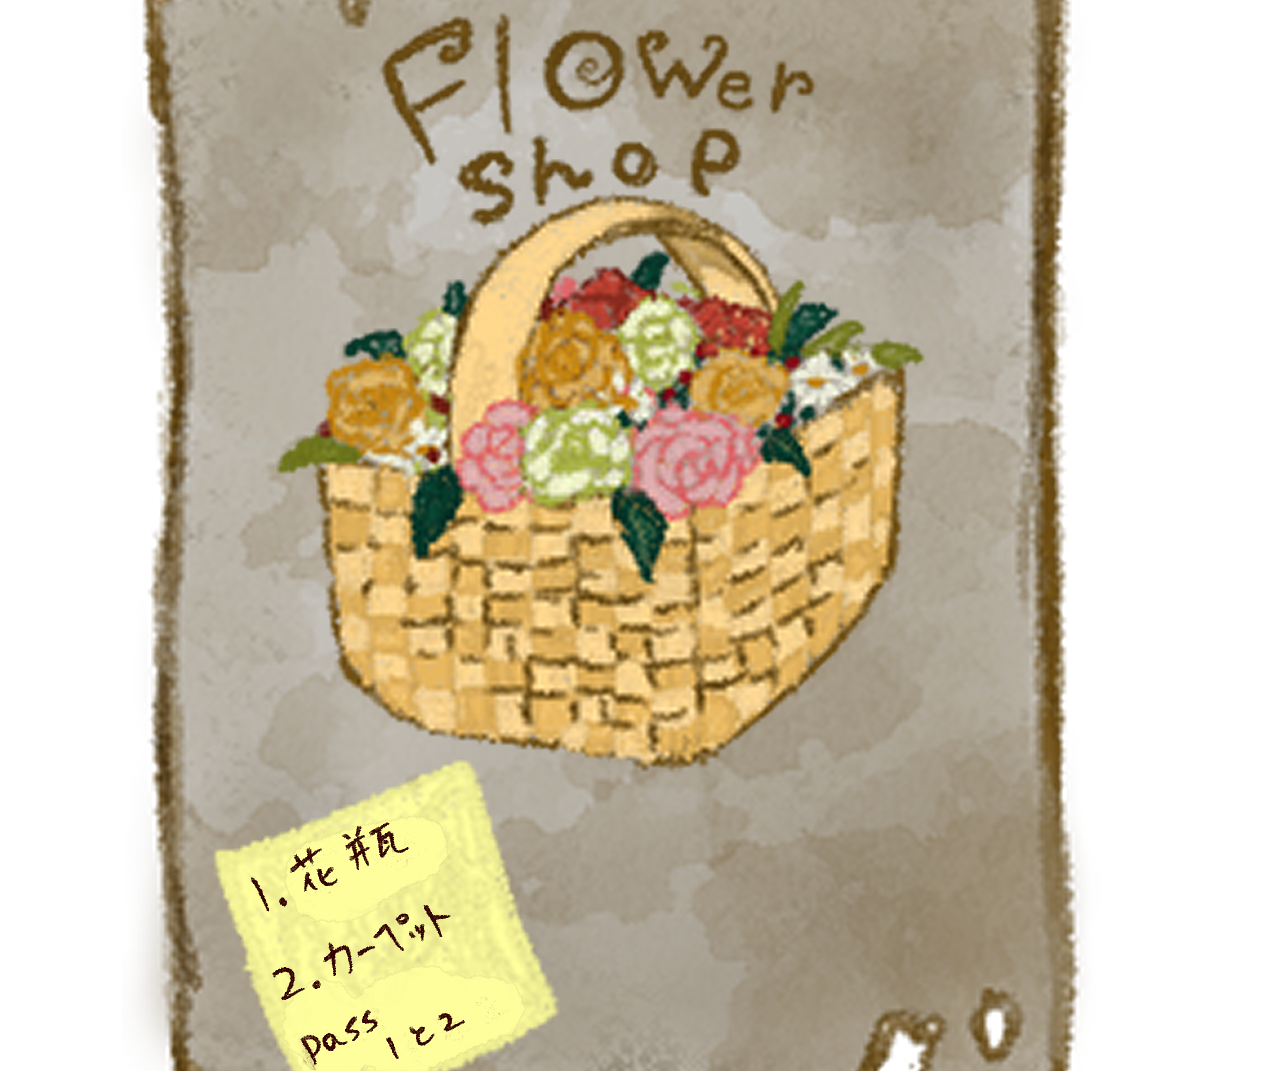 Flower
shop
1. 花瓶
2. カーペット
pass
1と2